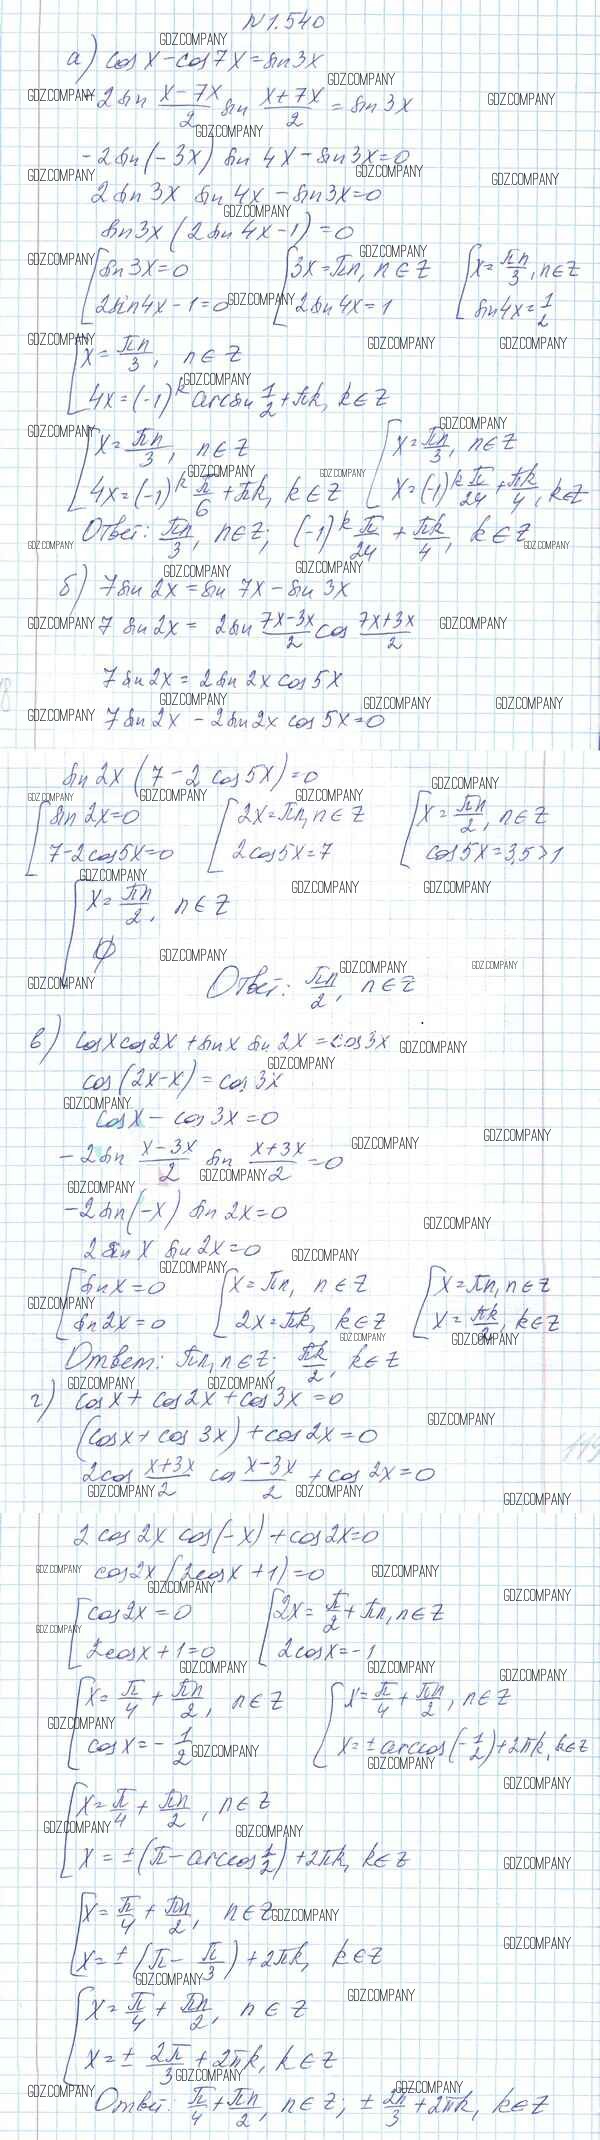 №1.540
а) cos x - cos 7x = sin 3x
-2 sin (x-7x)/2 sin (x+7x)/2 = sin 3x
-2 sin(-3x) sin 4x - sin 3x = 0
2 sin 3x sin 4x - sin 3x = 0
sin 3x (2 sin 4x - 1) = 0
[ sin 3x = 0 [ 3x = πn, n∈Z [ x = πn/3, n∈Z
2 sin 4x - 1 = 0 2 sin 4x = 1 sin 4x = 1/2
[ x = πn/3, n∈Z
4x = (-1)^k arcsin 1/2 + πk, k∈Z
[ x = πn/3, n∈Z [ x = πn/3, n∈Z
4x = (-1)^k π/6 + πk, k∈Z x = (-1)^k π/24 + πk/4, k∈Z
Ответ: πn/3, n∈Z; (-1)^k π/24 + πk/4, k∈Z
б) 7 sin 2x = sin 7x - sin 3x
7 sin 2x = 2 sin (7x-3x)/2 cos (7x+3x)/2
7 sin 2x = 2 sin 2x cos 5x
7 sin 2x - 2 sin 2x cos 5x = 0
sin 2x (7 - 2 cos 5x) = 0
[ sin 2x = 0 [ 2x = πn, n∈Z [ x = πn/2, n∈Z
7 - 2cos 5x = 0 2cos 5x = 7 cos 5x = 3,5 > 1
[ x = πn/2, n∈Z
∅
Ответ: πn/2, n∈Z
в) cos x cos 2x + sin x sin 2x = cos 3x
cos (2x-x) = cos 3x
cos x - cos 3x = 0
-2 sin (x-3x)/2 sin (x+3x)/2 = 0
-2 sin(-x) sin 2x = 0
2 sin x sin 2x = 0
[ sin x = 0 [ x = πn, n∈Z [ x = πn, n∈Z
sin 2x = 0 2x = πk, k∈Z x = πk/2, k∈Z
Ответ: πn, n∈Z; πk/2, k∈Z
г) cos x + cos 2x + cos 3x = 0
(cos x + cos 3x) + cos 2x = 0
2cos (x+3x)/2 cos (x-3x)/2 + cos 2x = 0
2 cos 2x cos(-x) + cos 2x = 0
cos 2x (2cos x + 1) = 0
[ cos 2x = 0 [ 2x = π/2 + πn, n∈Z
2cos x + 1 = 0 2cos x = -1
[ x = π/4 + πn/2, n∈Z [ x = π/4 + πn/2, n∈Z
cos x = -1/2 x = ± arccos(-1/2) + 2πk, k∈Z
[ x = π/4 + πn/2, n∈Z
x = ±(π - arccos 1/2) + 2πk, k∈Z
[ x = π/4 + πn/2, n∈Z
x = ±(π - π/3) + 2πk, k∈Z
[ x = π/4 + πn/2, n∈Z
x = ± 2π/3 + 2πk, k∈Z
Ответ: π/4 + πn/2, n∈Z; ± 2π/3 + 2πk, k∈Z
GDZ.COMPANY